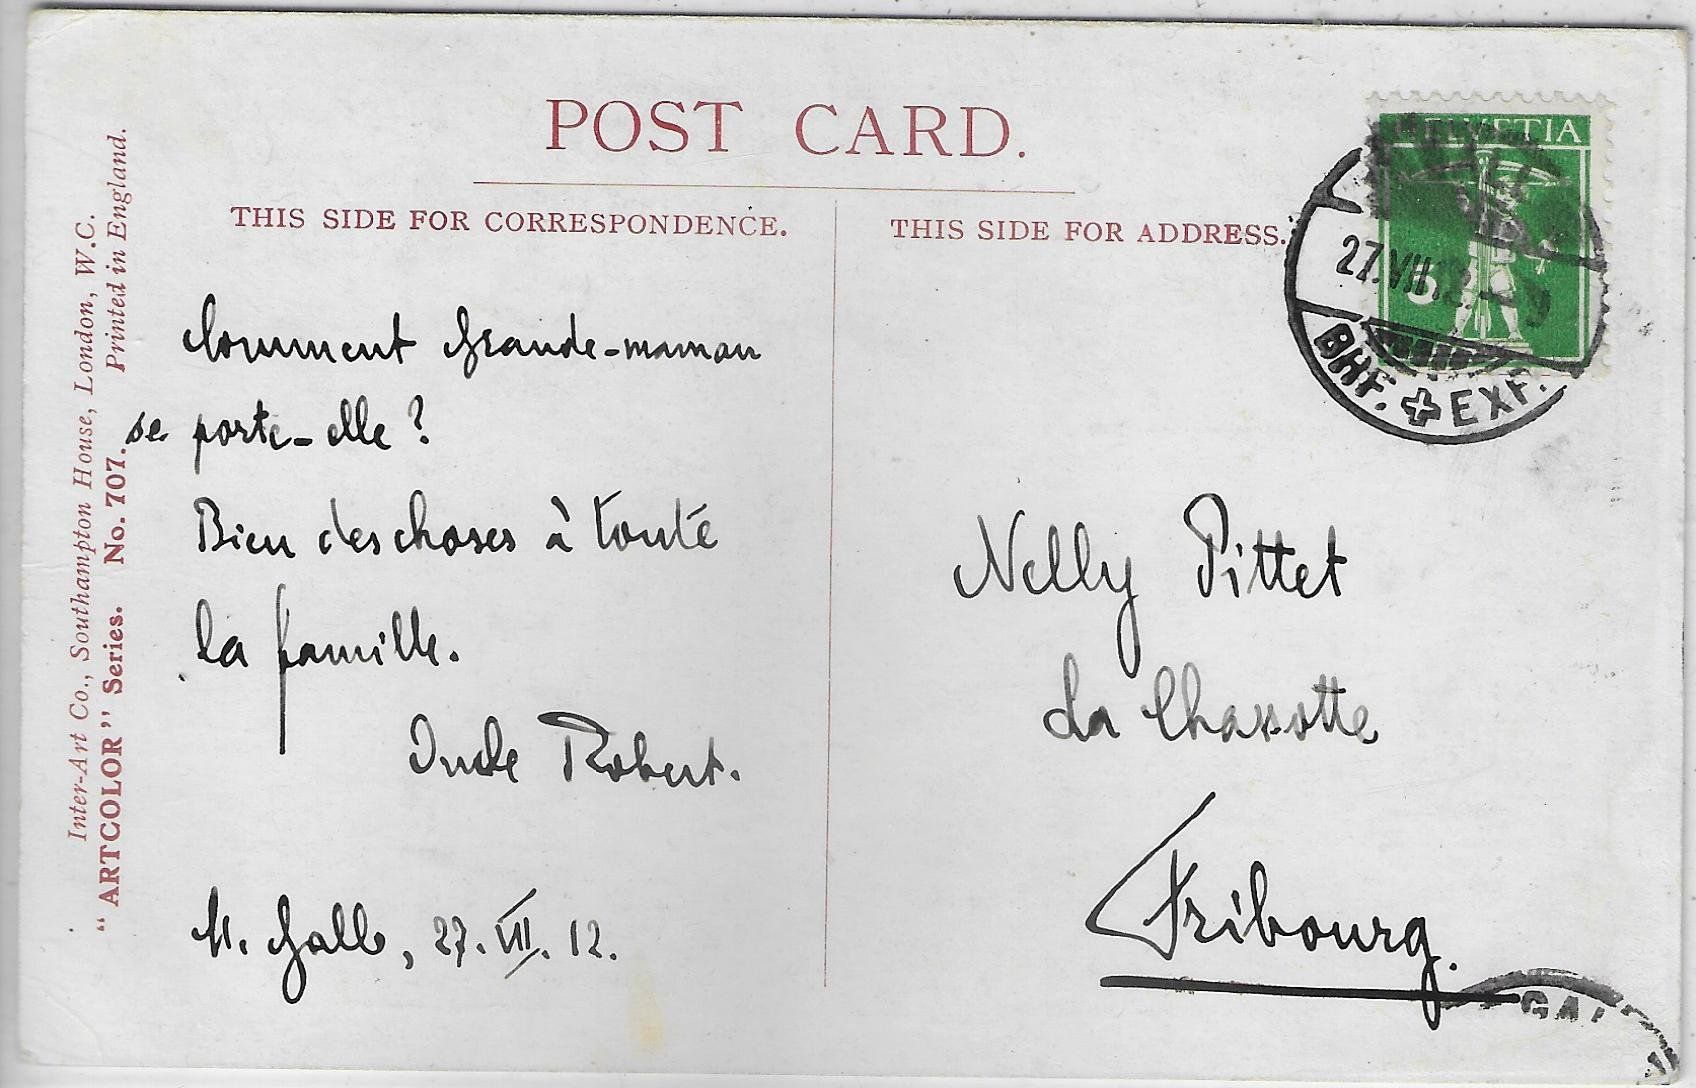 POST CARD.
THIS SIDE FOR CORRESPONDENCE.
THIS SIDE FOR ADDRESS.
Inter-Art Co., Southampton House, London, W.C.
Printed in England.
"ARTCOLOR" Series. No. 707.
Comment Grande-maman
se porte-elle?
Bien des choses à toute
la famille.
Oncle Robert.
St. Gall, 27. VII. 12.
Nelly Pittet
La Chassotte
Fribourg.
HELVETIA
5
27.VII.12.
BHF. EXP.
GAL